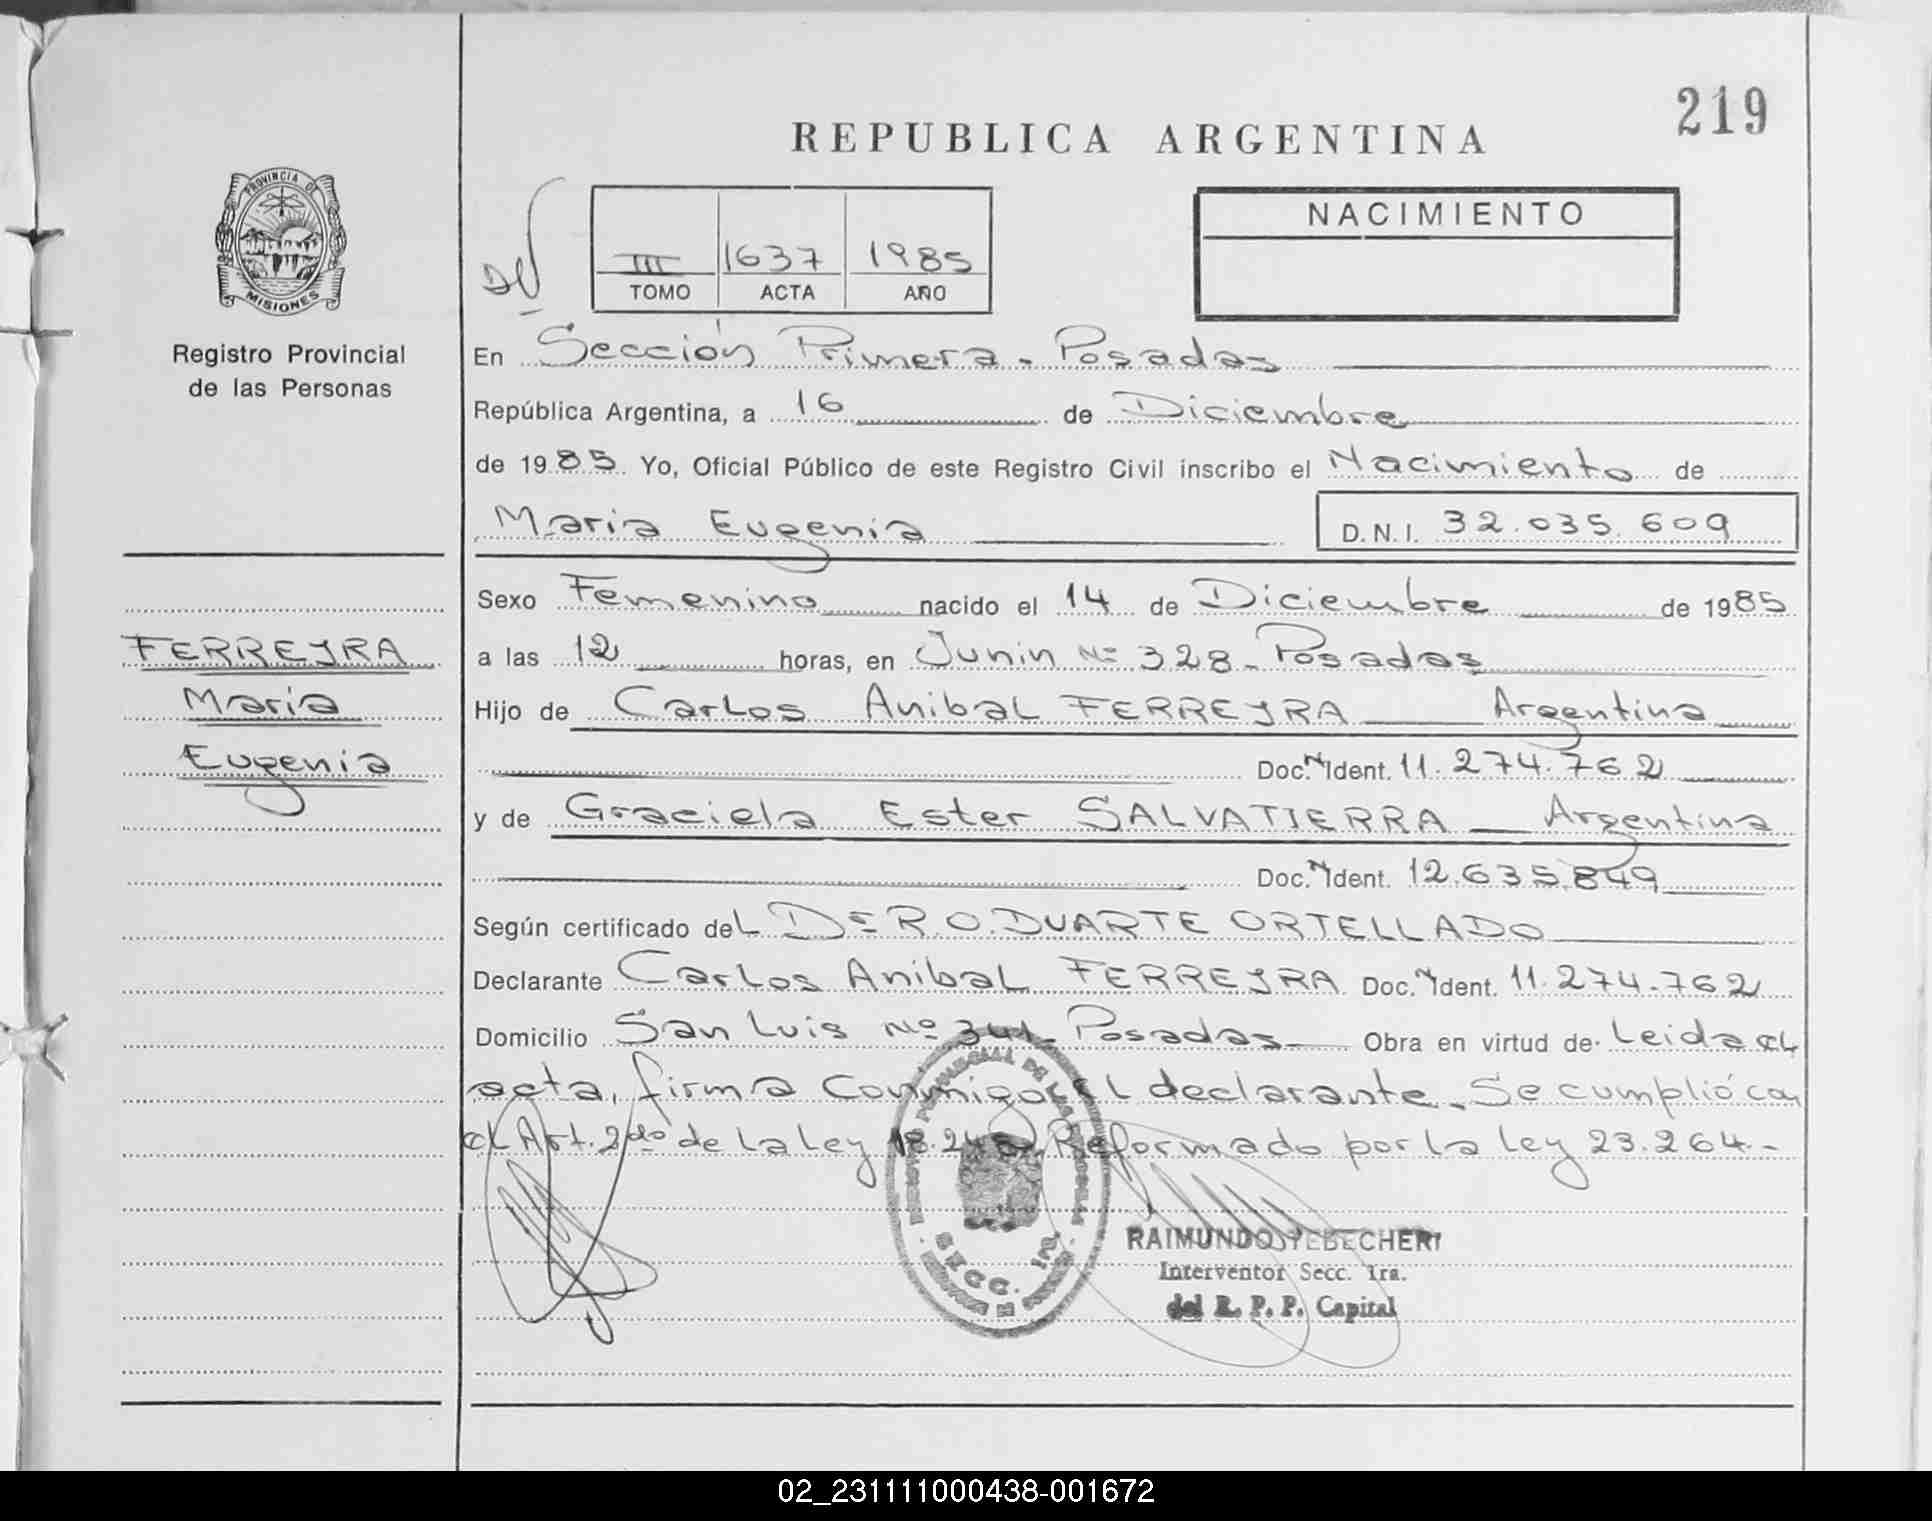 219
REPUBLICA ARGENTINA
PROVINCIA DE
MISIONES
Registro Provincial
de las Personas
III 1637 1985
TOMO ACTA AÑO
NACIMIENTO
En Sección Primera - Posadas
República Argentina, a 16 de Diciembre
de 1985 Yo, Oficial Público de este Registro Civil inscribo el Nacimiento de
Maria Eugenia D.N.I. 32.035.609
Sexo Femenino nacido el 14 de Diciembre de 1985
a las 12 horas, en Junin Nº 328 - Posadas
FERREYRA
Maria
Eugenia
Hijo de Carlos Anibal FERREYRA Argentina
Doc. N Ident. 11.274.762
y de Graciela Ester SALVATIERRA Argentina
Doc. N Ident. 12.635.849
Según certificado del Dr R.O. DUARTE ORTELLADO
Declarante Carlos Anibal FERREYRA Doc. N Ident. 11.274.762
Domicilio San Luis Nº 341 - Posadas Obra en virtud de Leida el
acta, firma Conmigo el declarante. Se cumplió con
el Art. 2do de la Ley 18.248 Reformado por la Ley 23.264.-
SECC. 1ra.
RAIMUNDO YEBECHERI
Interventor Secc. 1ra.
del R. P. P. Capital
02_231111000438-001672